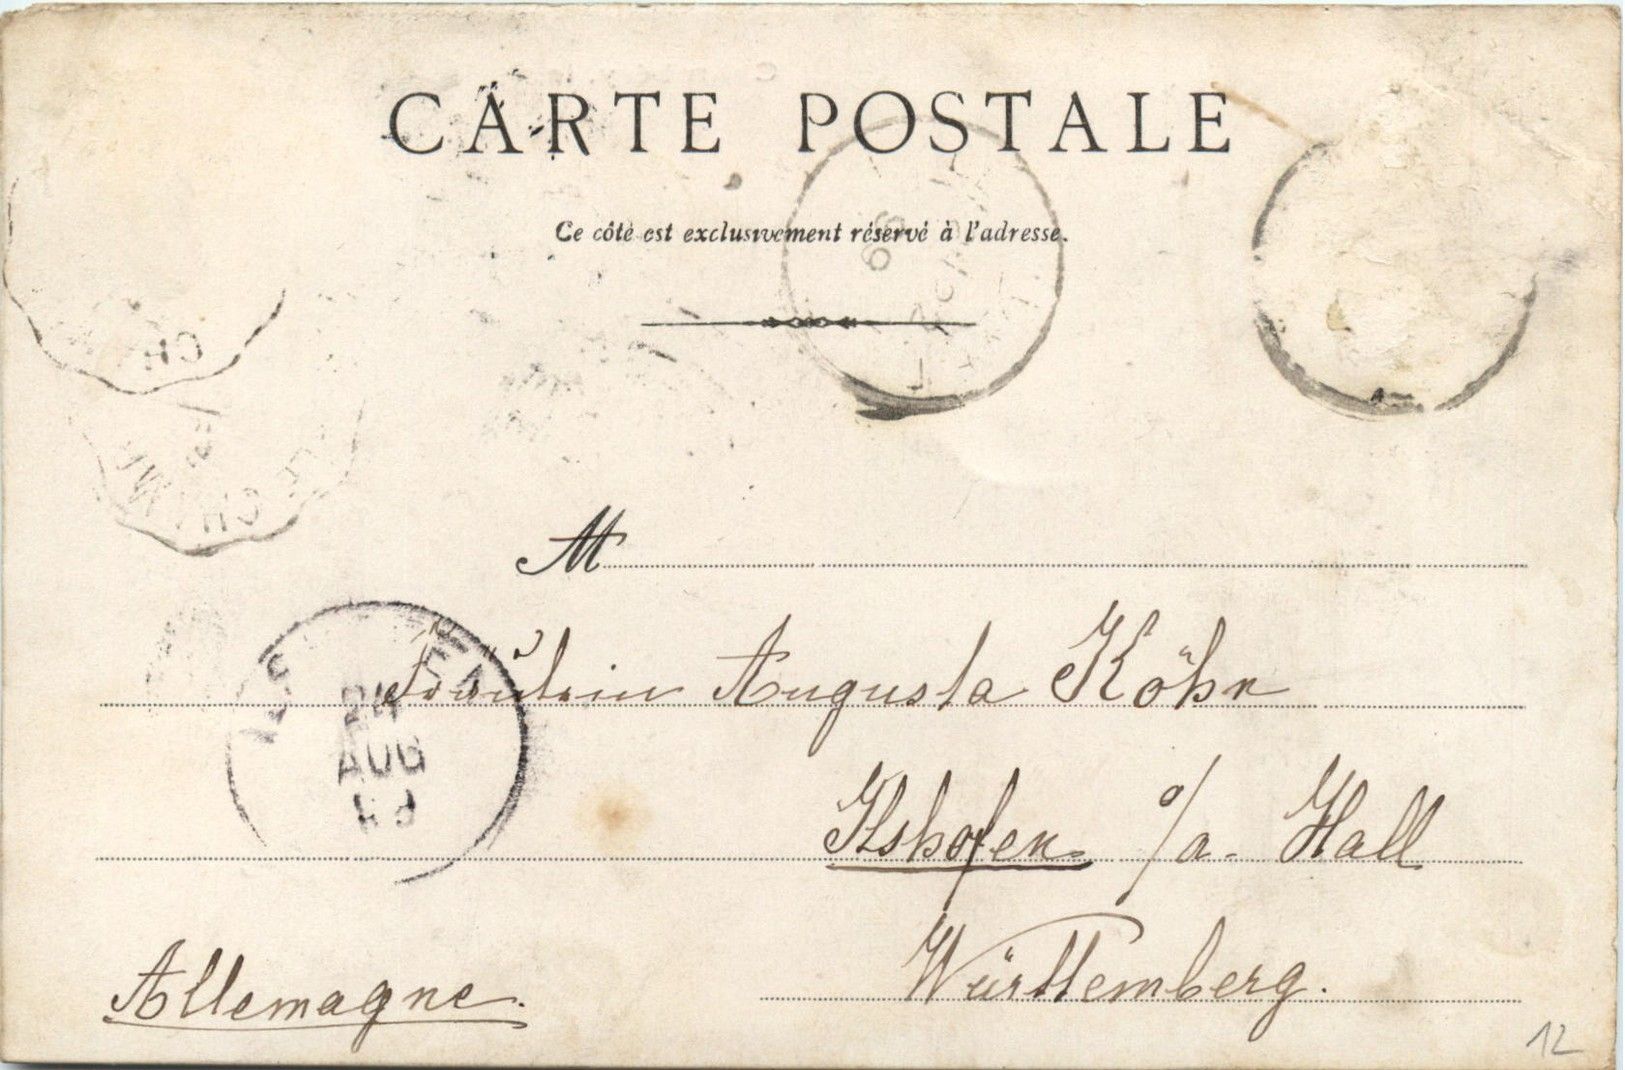 CARTE POSTALE
Ce côté est exclusivement réservé à l'adresse.
M
Fräulein Augusta Köhn
Ilshofen o/a. Hall
Württemberg.
Allemagne.
24
AUG
12